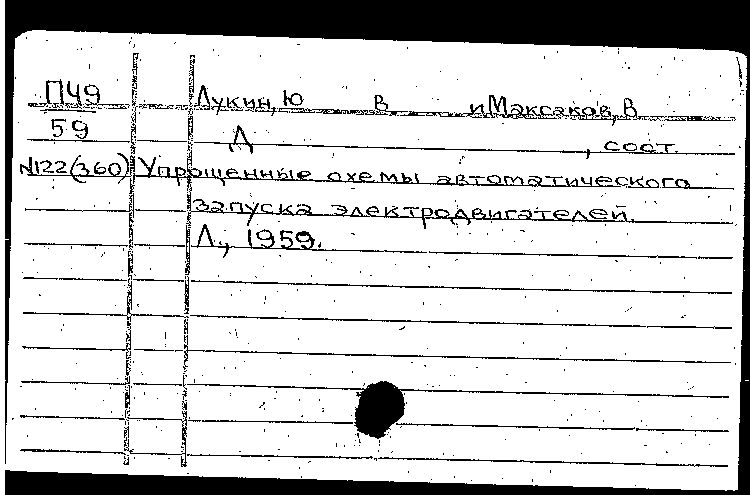 П49 Лукин, Ю В. и Максаков, В.
59 Д , сост.
№122(360) Упрощенные схемы автоматического
запуска электродвигателей.
Л., 1959.